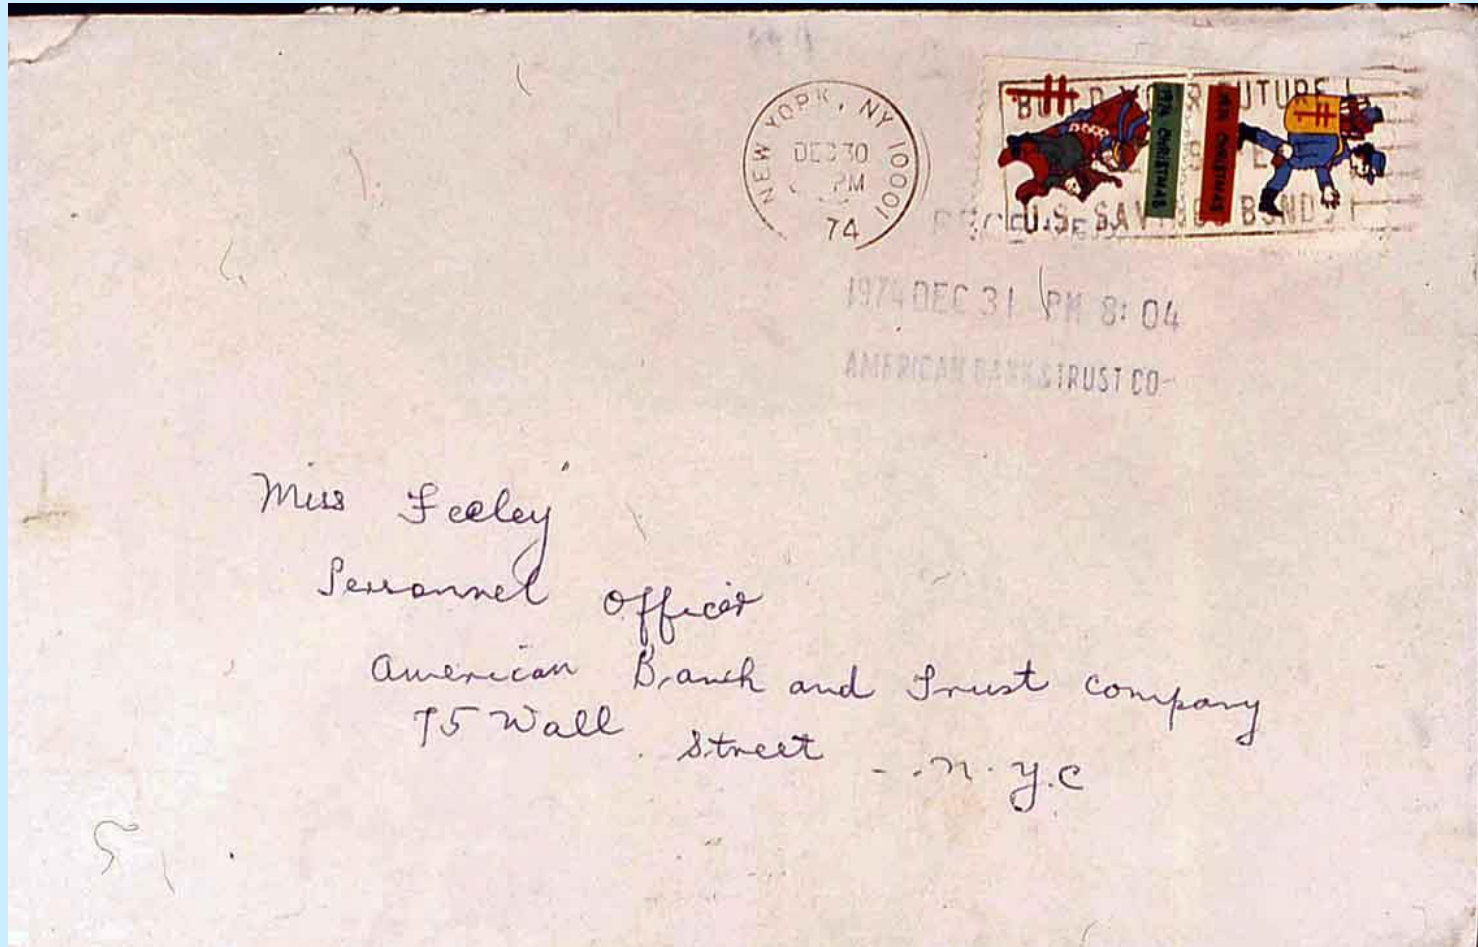 NEW YORK, NY 10001
DEC 30
PM
74
BUILD YOUR FUTURE
U.S. SAVINGS BONDS
1974 CHRISTMAS
1974 CHRISTMAS
RECEIVED
1974 DEC 31 PM 8:04
AMERICAN BANK & TRUST CO-
Miss Feeley
Personnel Officer
American Branch and Trust Company
75 Wall Street - . N.Y.C